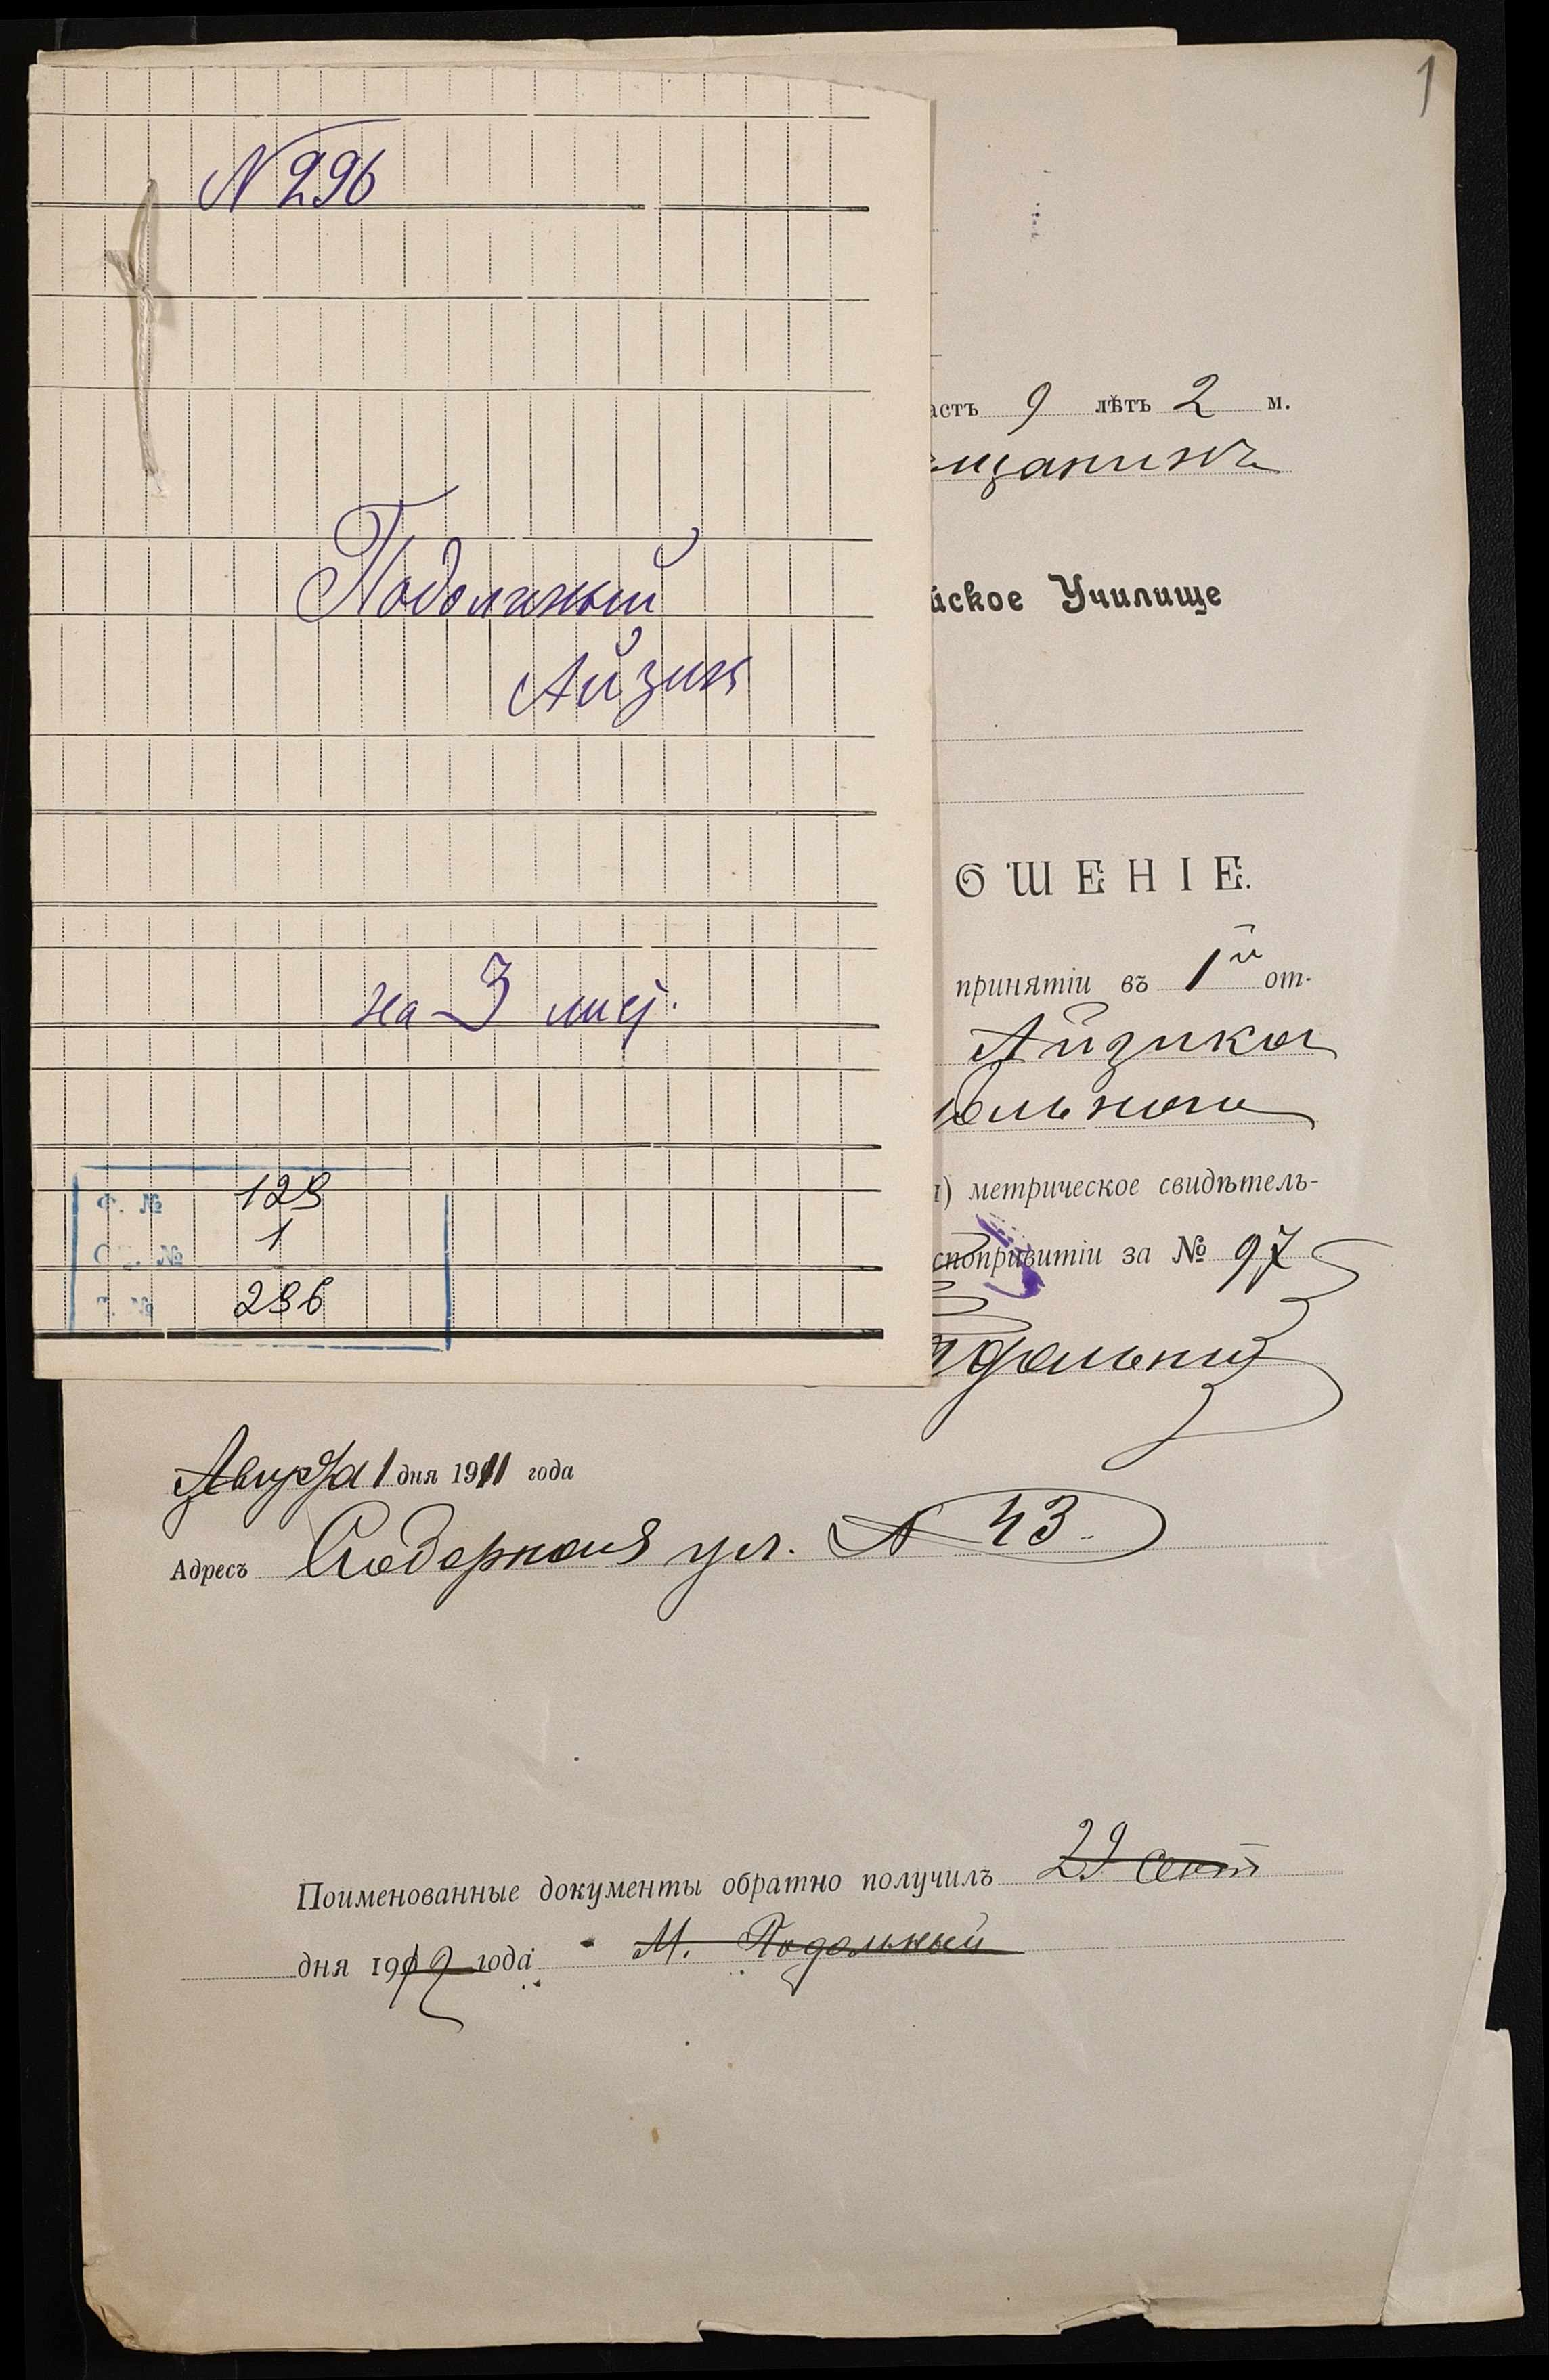 1
N 296
Подольный
Айзик
на 3 лис.
Ф. № 129
ОП. № 1
Т. № 296
астъ 9 лѣтъ 2 м.
ѣщанинъ
йское Училище
ОШЕНІЕ.
принятіи въ 1й от-
Айзика
ольнаго
метрическое свидѣтель-
спопривитіи за № 97
одольный
Августа 1 дня 1911 года
Адресъ ул. N 43
Поименованные документы обратно получилъ 29 сент
дня 1912 года М. Подольный